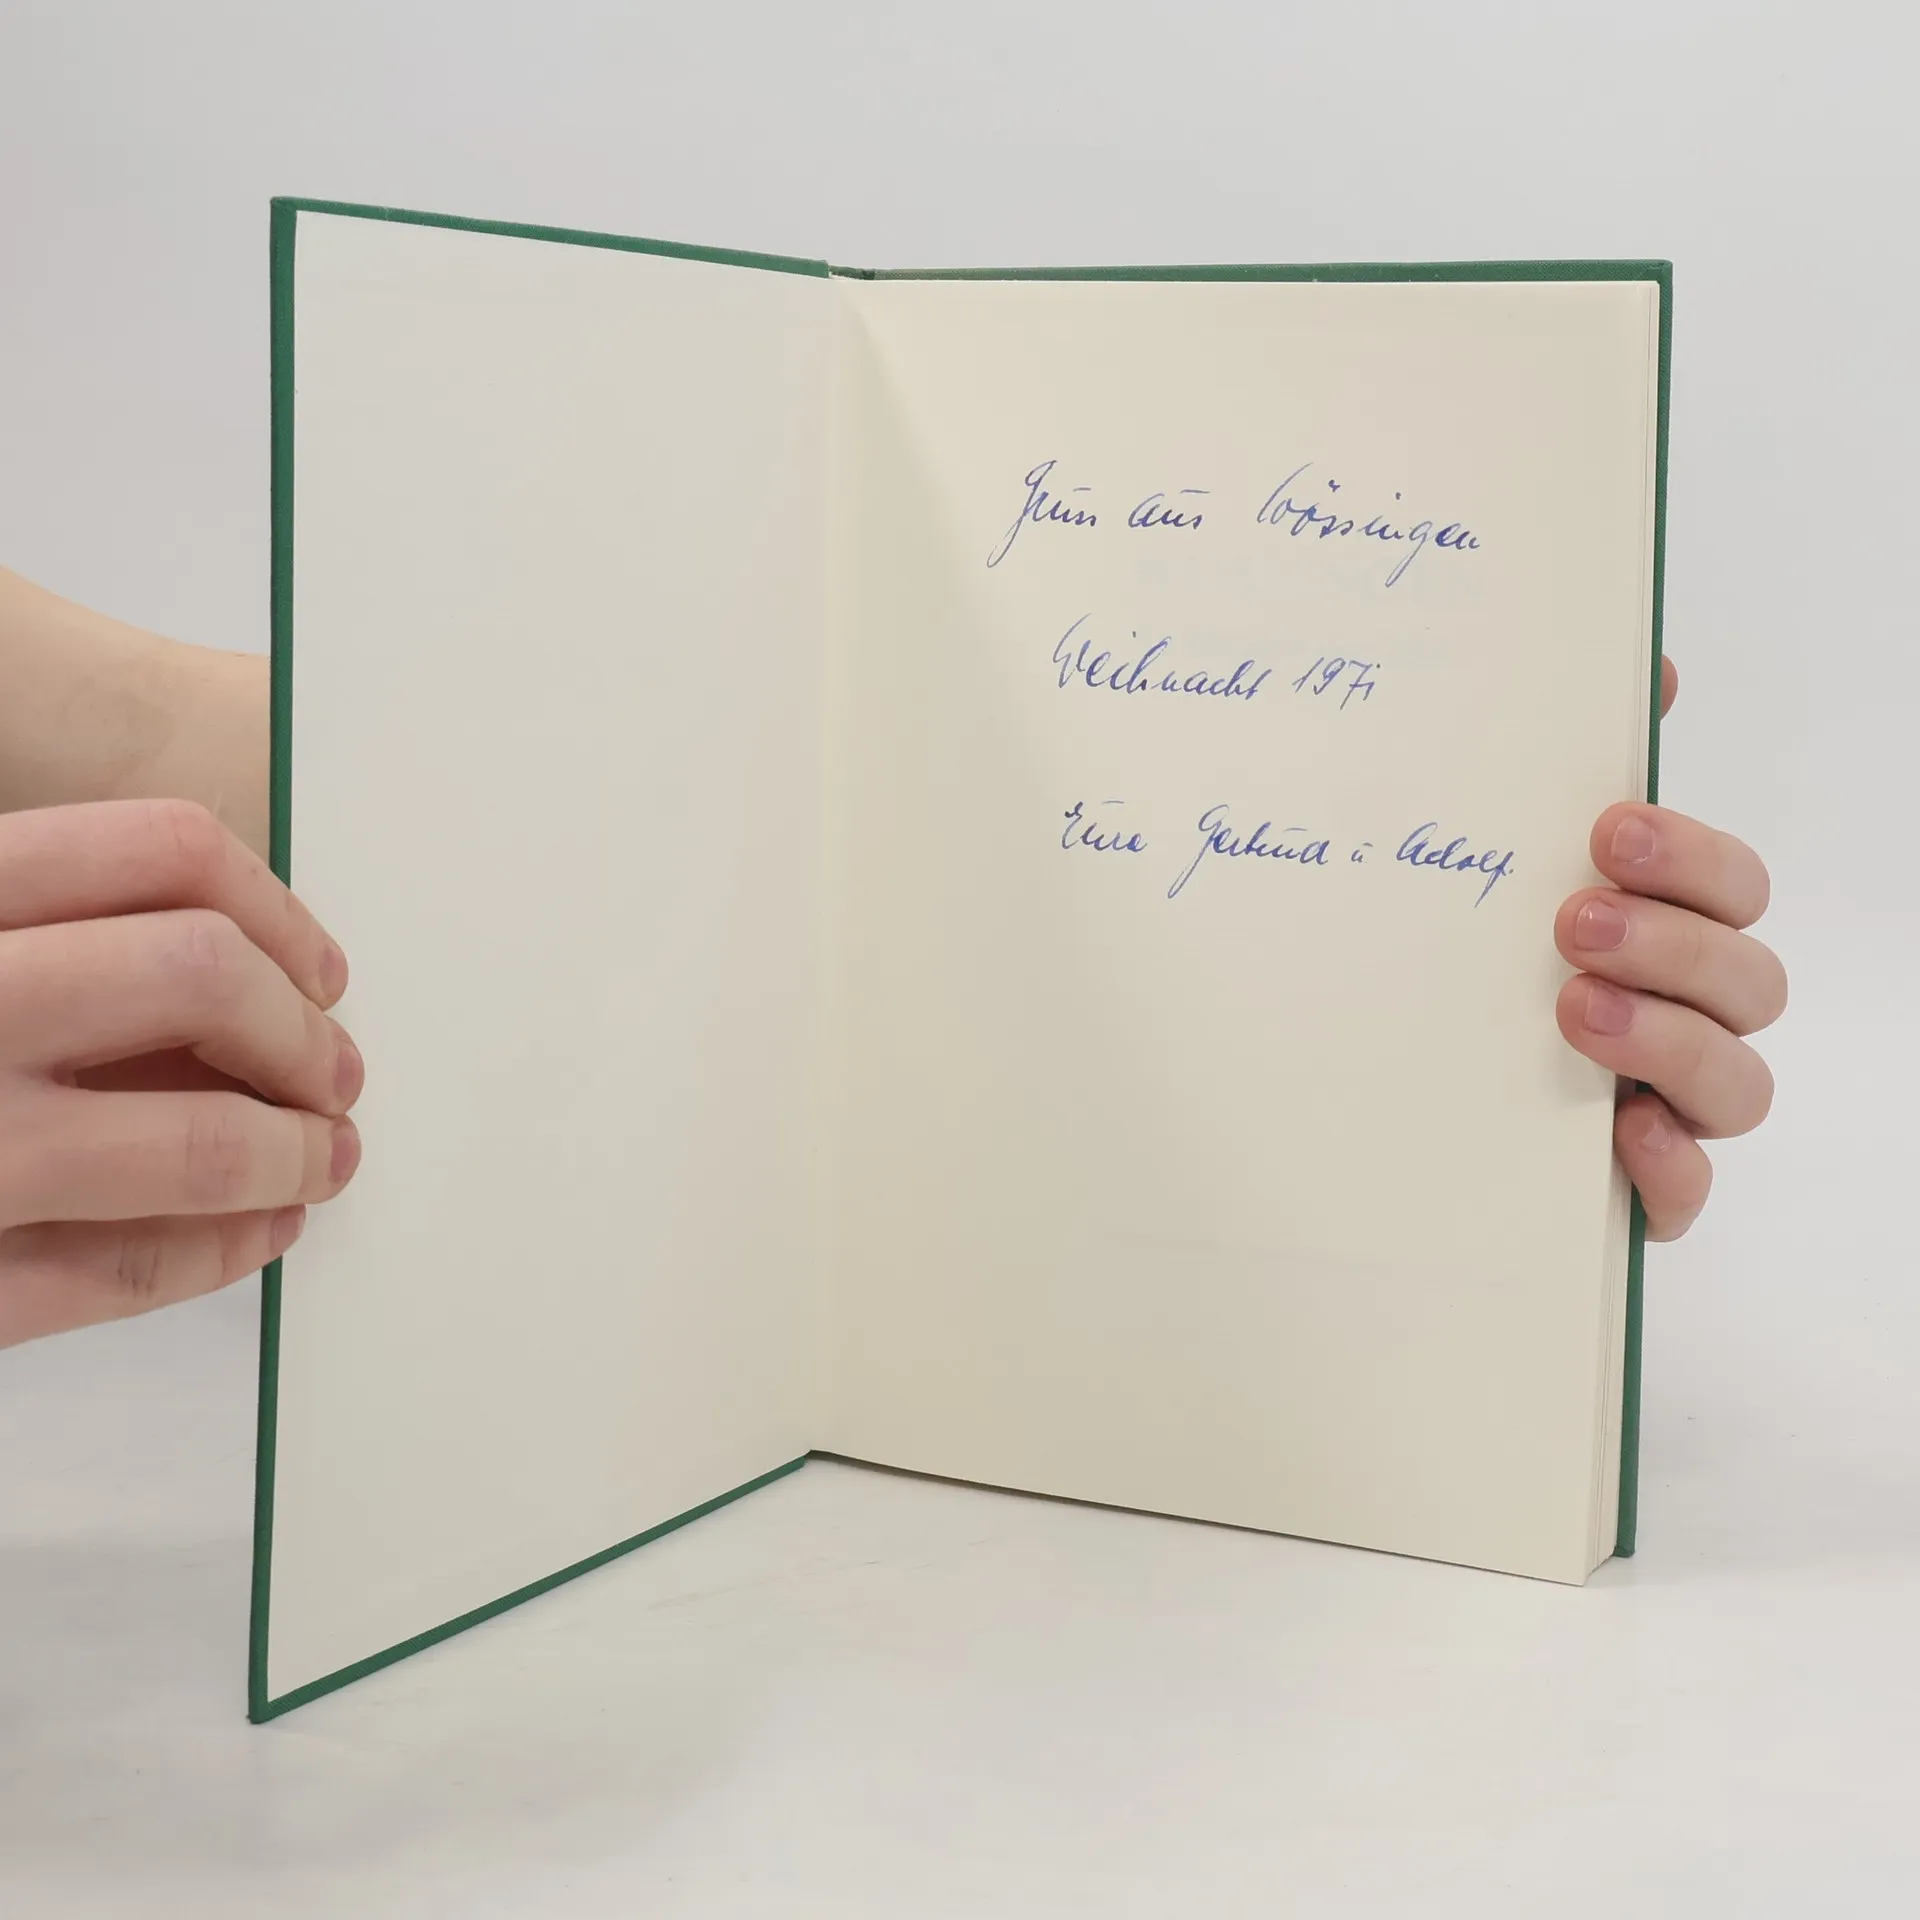 Gruss aus Wössingen
Weihnacht 1971
Eure Gertrud u Adolf.